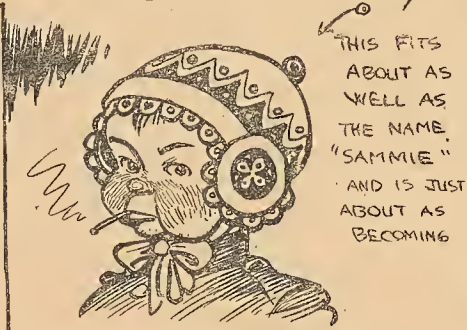 THIS FITS
ABOUT AS
WELL AS
THE NAME
"SAMMIE"
AND IS JUST
ABOUT AS
BECOMING